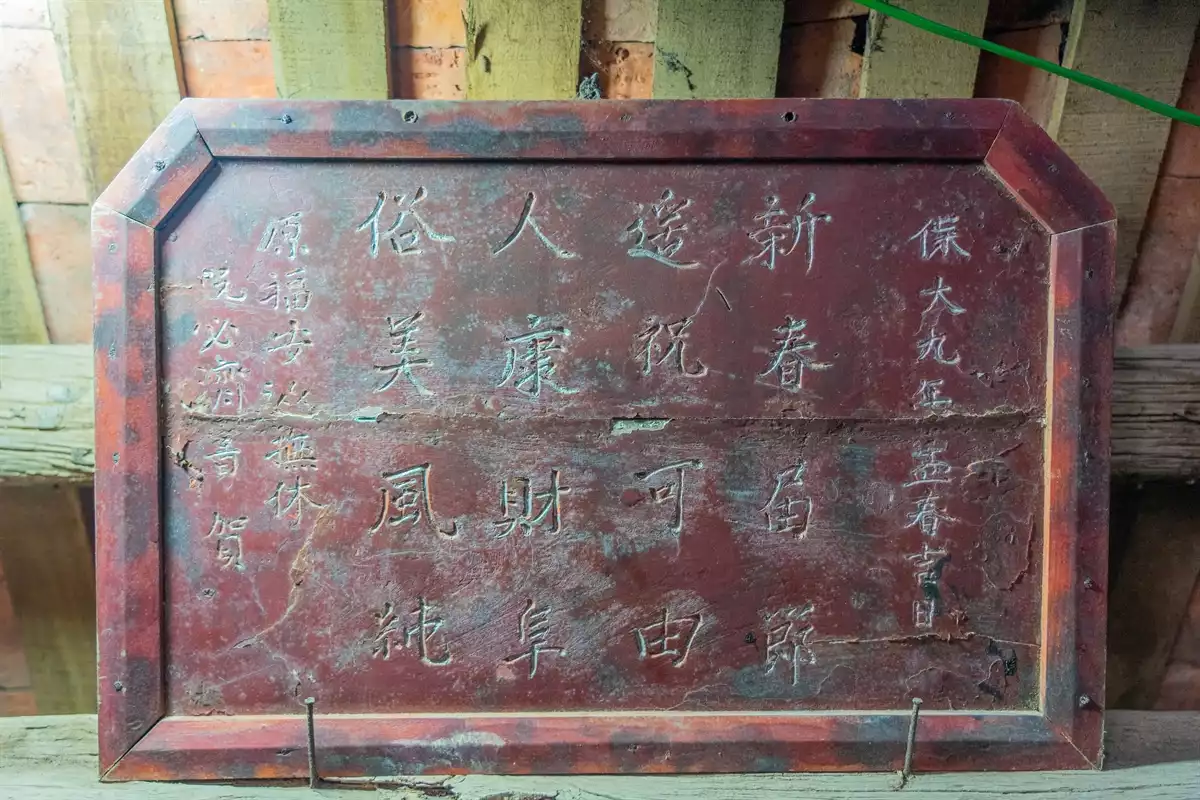 保大九年孟春吉日
新春届節
遙祝河由
人康財阜
俗美風純
原福安巡撫休
阮必濟賀